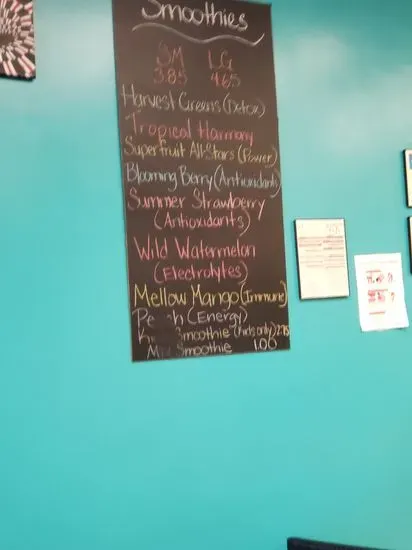 Smoothies
SM LG
3.85 4.65
Harvest Greens (Detox)
Tropical Harmony
Superfruit All-Stars (Power)
Blooming Berry (Antioxidants)
Summer Strawberry
(Antioxidants)
Wild Watermelon
(Electrolytes)
Mellow Mango (Immune)
(Energy)
Smoothie (Kids only) 2.75
Smoothie 1.00